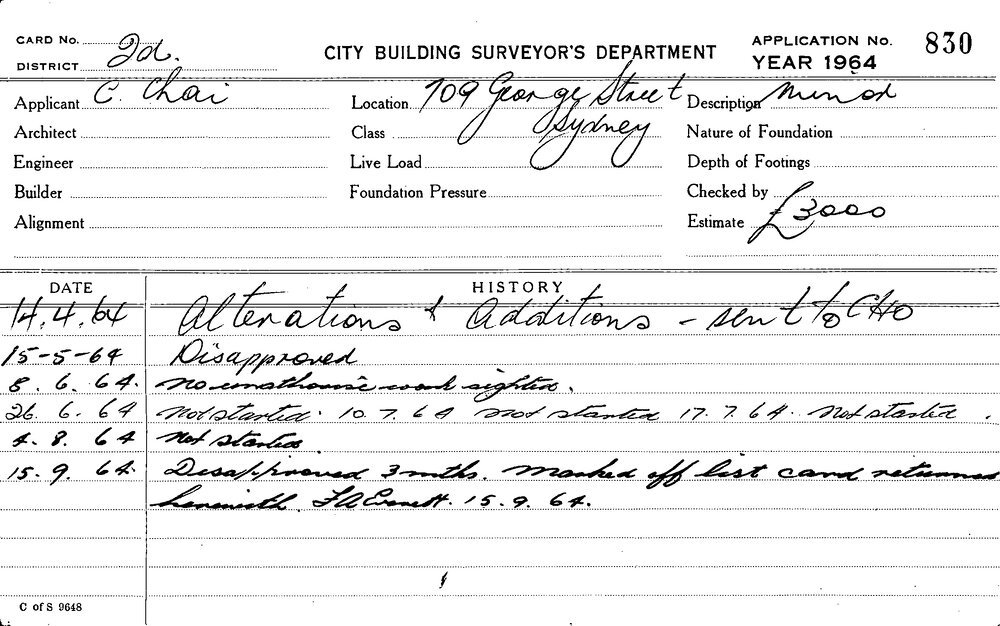 CARD No.
DISTRICT 2d.
CITY BUILDING SURVEYOR'S DEPARTMENT
APPLICATION No. 830
YEAR 1964
Applicant C. Chai
Location 709 George Street
Sydney
Description Minor
Architect
Class
Nature of Foundation
Engineer
Live Load
Depth of Footings
Builder
Foundation Pressure
Checked by
Alignment
Estimate £3000
DATE HISTORY
14.4.64 Alterations & Additions - sent to CHO
15-5-64 Disapproved
8.6.64. No unathorise work sighted.
26.6.64 Not started. 10.7.64 Not started 17.7.64. Not started.
4.8.64 Not started
15.9.64. Disapproved 3 mths. Marked off list card returned
herewith. 15.9.64.
C of S 9648